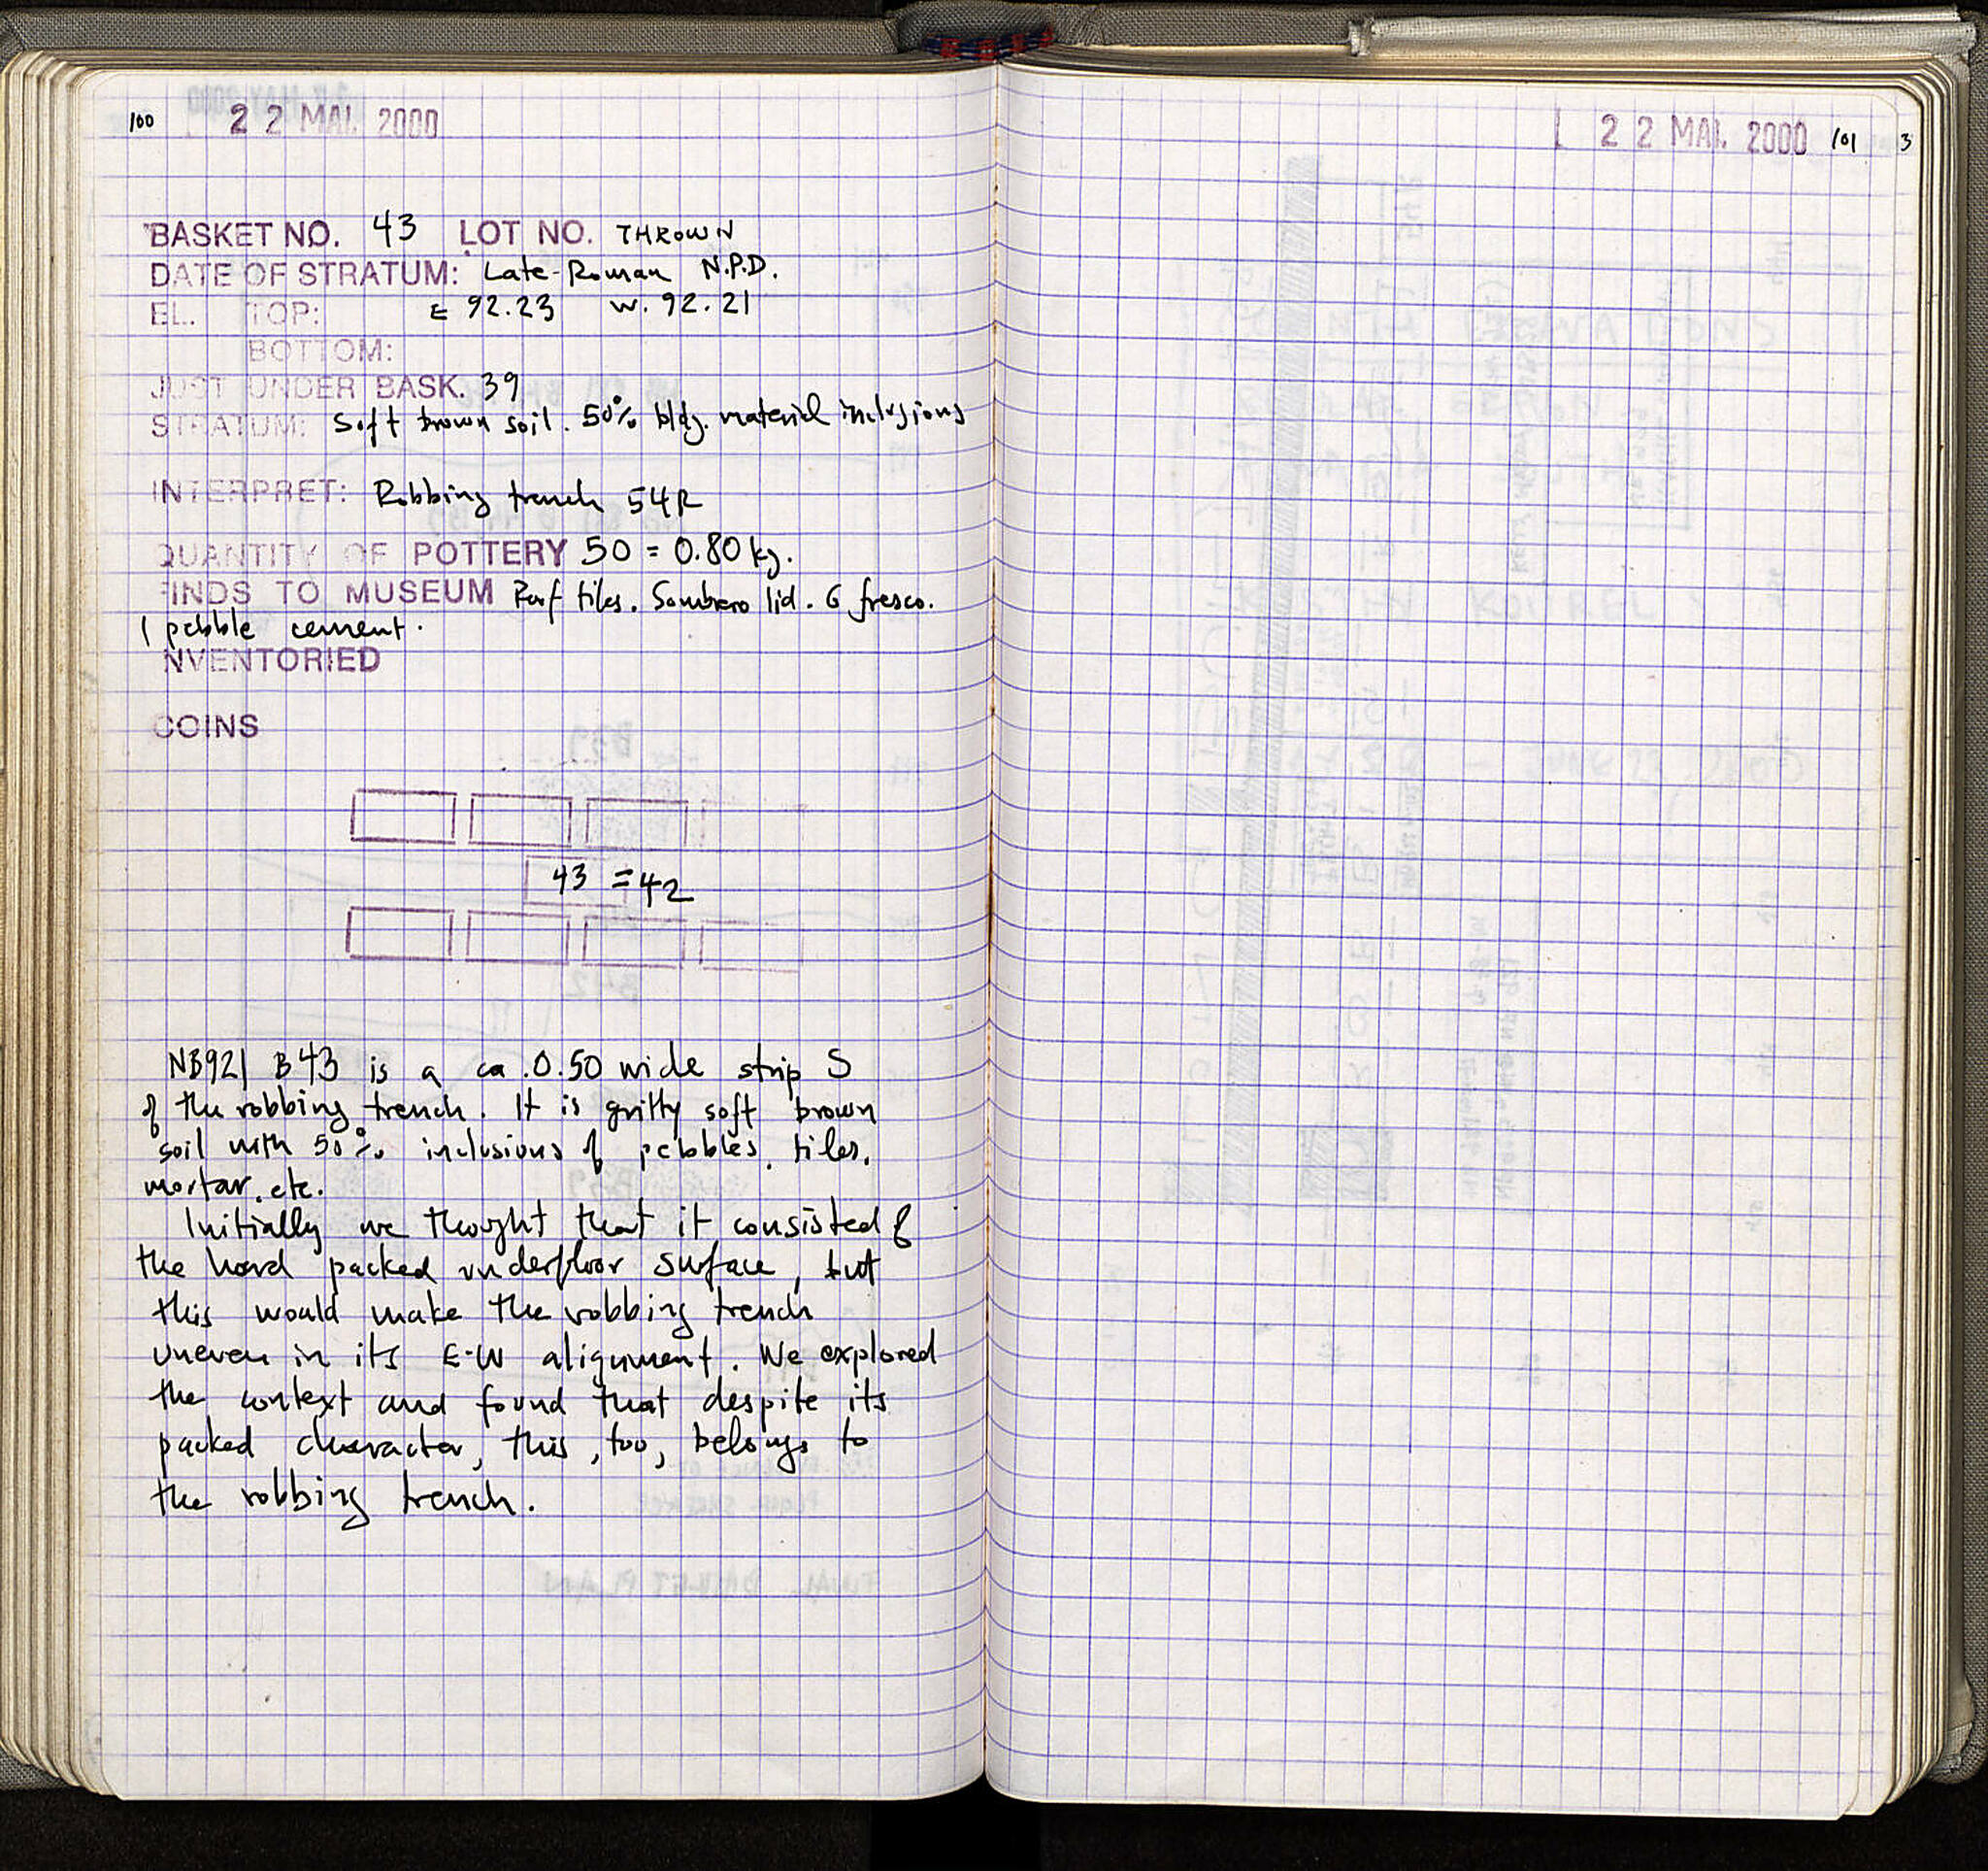 100 22 MAI. 2000
BASKET NO. 43 LOT NO. THROWN
DATE OF STRATUM: Late-Roman N.P.D.
EL. TOP: E 92.23 W. 92.21
BOTTOM:
JUST UNDER BASK. 39
STRATUM: Soft brown soil. 50% bldg. material inclusions
INTERPRET: Robbing trench 54R
QUANTITY OF POTTERY 50 = 0.80 kg.
FINDS TO MUSEUM Perf tiles. Sombrero lid. 6 fresco.
1 pebble cement.
INVENTORIED
COINS
43 = 42
NB921 B43 is a ca. 0.50 wide strip S
of the robbing trench. It is gritty soft brown
soil with 50% inclusions of pebbles, tiles,
mortar, etc.
Initially we thought that it consisted of
the hard packed underfloor surface, but
this would make the robbing trench
uneven in its E-W alignment. We explored
the context and found that despite its
packed character, this, too, belongs to
the robbing trench.
22 MAI. 2000 101 3